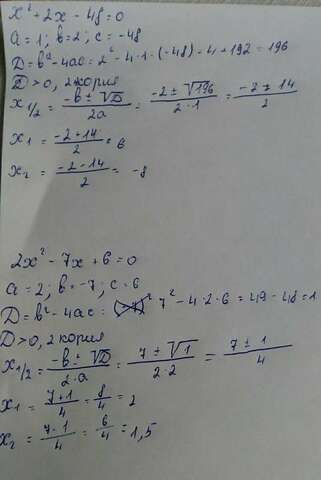 x² + 2x - 48 = 0
a = 1; b = 2; c = -48
D = b² - 4ac = 2² - 4·1·(-48) - 4 + 192 = 196
D > 0, 2 корня
x1/2 = (-b ± √D)/(2a) = (-2 ± √196)/(2·1) = (-2 ± 14)/2
x1 = (-2+14)/2 = 6
x2 = (-2-14)/2 = -8
2x² - 7x + 6 = 0
a = 2; b = -7; c = 6
D = b² - 4ac = 7² - 4·2·6 = 49 - 48 = 1
D > 0, 2 корня
x1/2 = (-b ± √D)/(2·a) = (7 ± √1)/(2·2) = (7 ± 1)/4
x1 = (7+1)/4 = 8/4 = 2
x2 = (7-1)/4 = 6/4 = 1,5